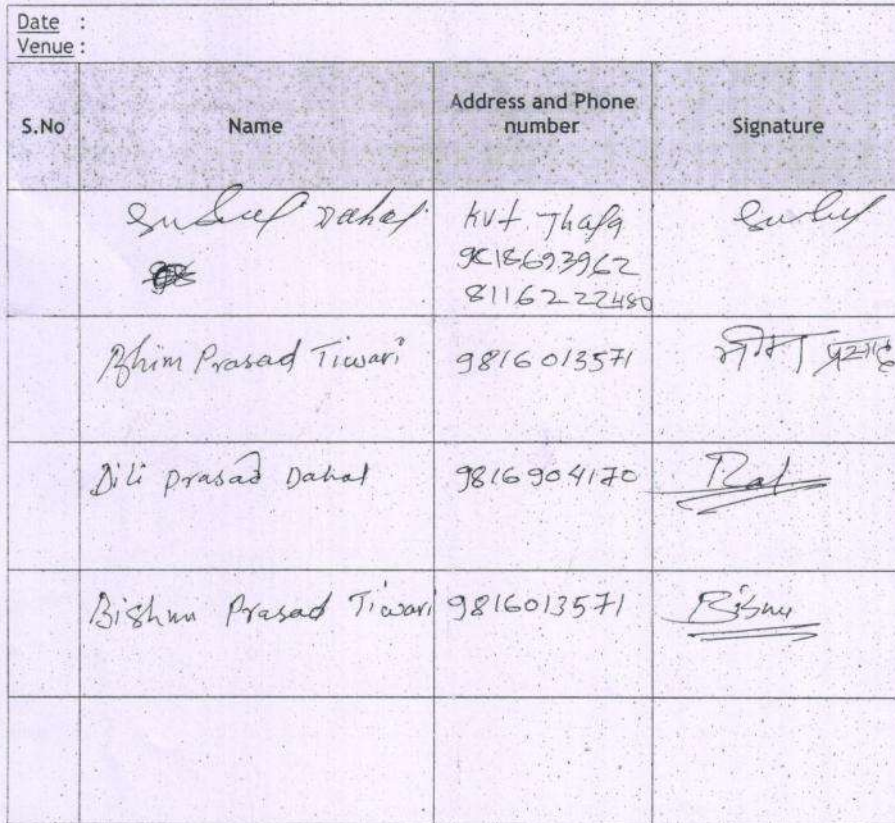 Date :
Venue :
S.No Name Address and Phone number Signature
Dahal
9818693962
8116222480
Bhim Prasad Tiwari 9816013571
Dili prasad Dahal 9816904170
Bishnu Prasad Tiwari 9816013571 Bisnu